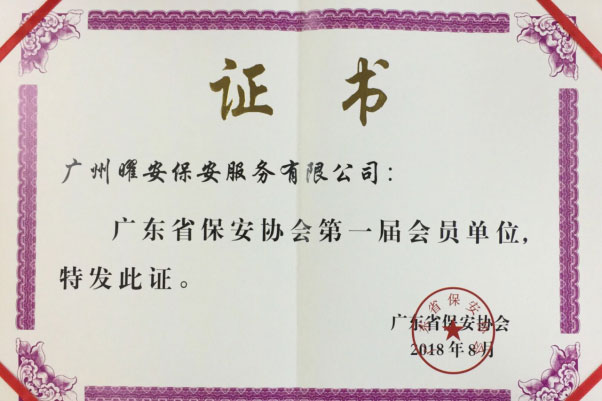 证书
广州曜安保安服务有限公司：
广东省保安协会第一届会员单位，
特发此证。
广东省保安协会
2018年8月
广东省保安协会